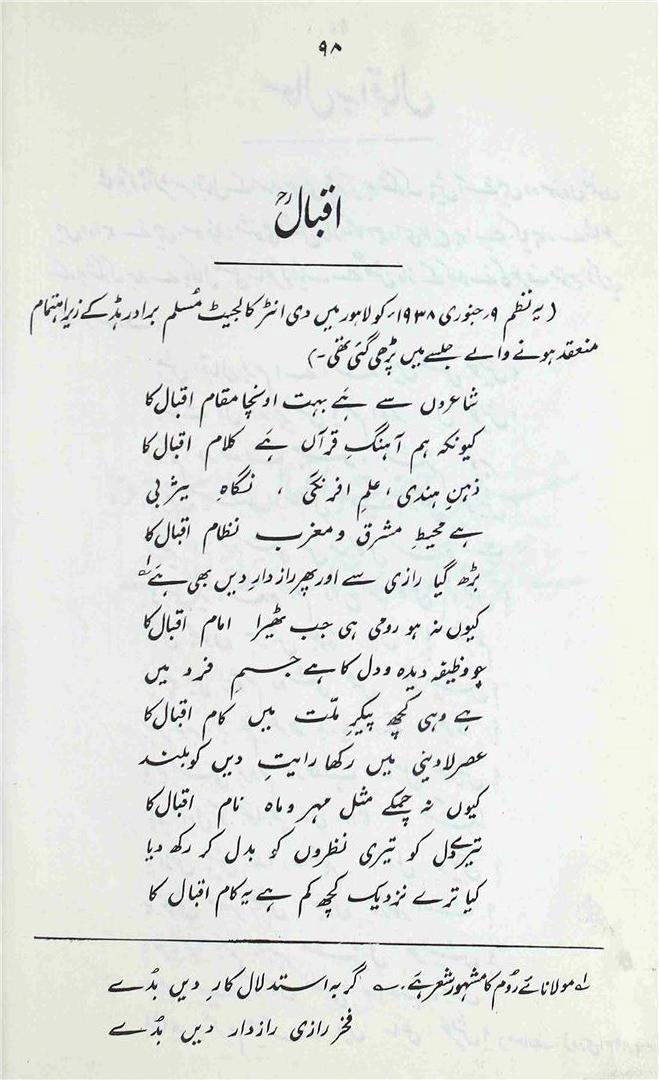 ۹۸
اقبالؒ
(یہ نظم ۹؍ جنوری ۱۹۳۸؍ کو لاہور میں دی انٹر کالجیٹ مُسلم برادر ہڈ کے زیرِ اہتمام
منعقد ہونے والے جلسے میں پڑھی گئی تھی۔)
شاعروں سے ہے بہت اونچا مقام اقبال کا
کیونکہ ہم آہنگِ قرآں ہے کلام اقبال کا
ذہنِ ہندی، علمِ افرنگی، نگاہِ یثربی
ہے محیطِ مشرق و مغرب نظام اقبال کا
بڑھ گیا رازی سے اور پھر رازدارِ دیں بھی ہے ؎۱
کیوں نہ ہو رومی ہی جب ٹھیرا امام اقبال کا
جو وظیفہ دیدہ و دل کا ہے جسمِ فرد میں
ہے وہی کچھ پیکرِ ملّت میں کام اقبال کا
عصرِ لادینی میں رکھا رایتِ دیں کو بلند
کیوں نہ چمکے مثل مہر و ماہ نام اقبال کا
تیرے دل کو تیری نظروں کو بدل کر رکھ دیا
کیا ترے نزدیک کچھ کم ہے یہ کام اقبال کا
؎۱ مولانائے رُوم کا مشہور شعر ہے۔ ؎ گر بہ استدلال کارِ دیں بدُے
فخر رازی رازدار دیں بدُے